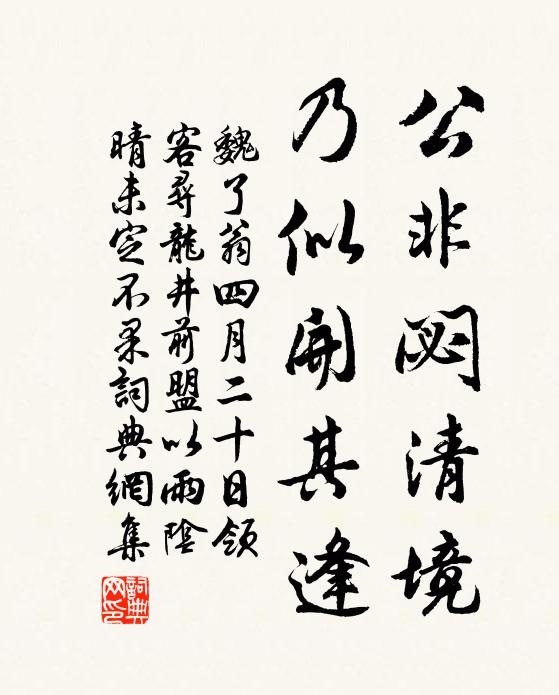 公非閟清境
乃似開其逢
魏了翁四月二十日領
客尋龍井前盟以雨陰
晴未定不果詞典網集
詞典網印